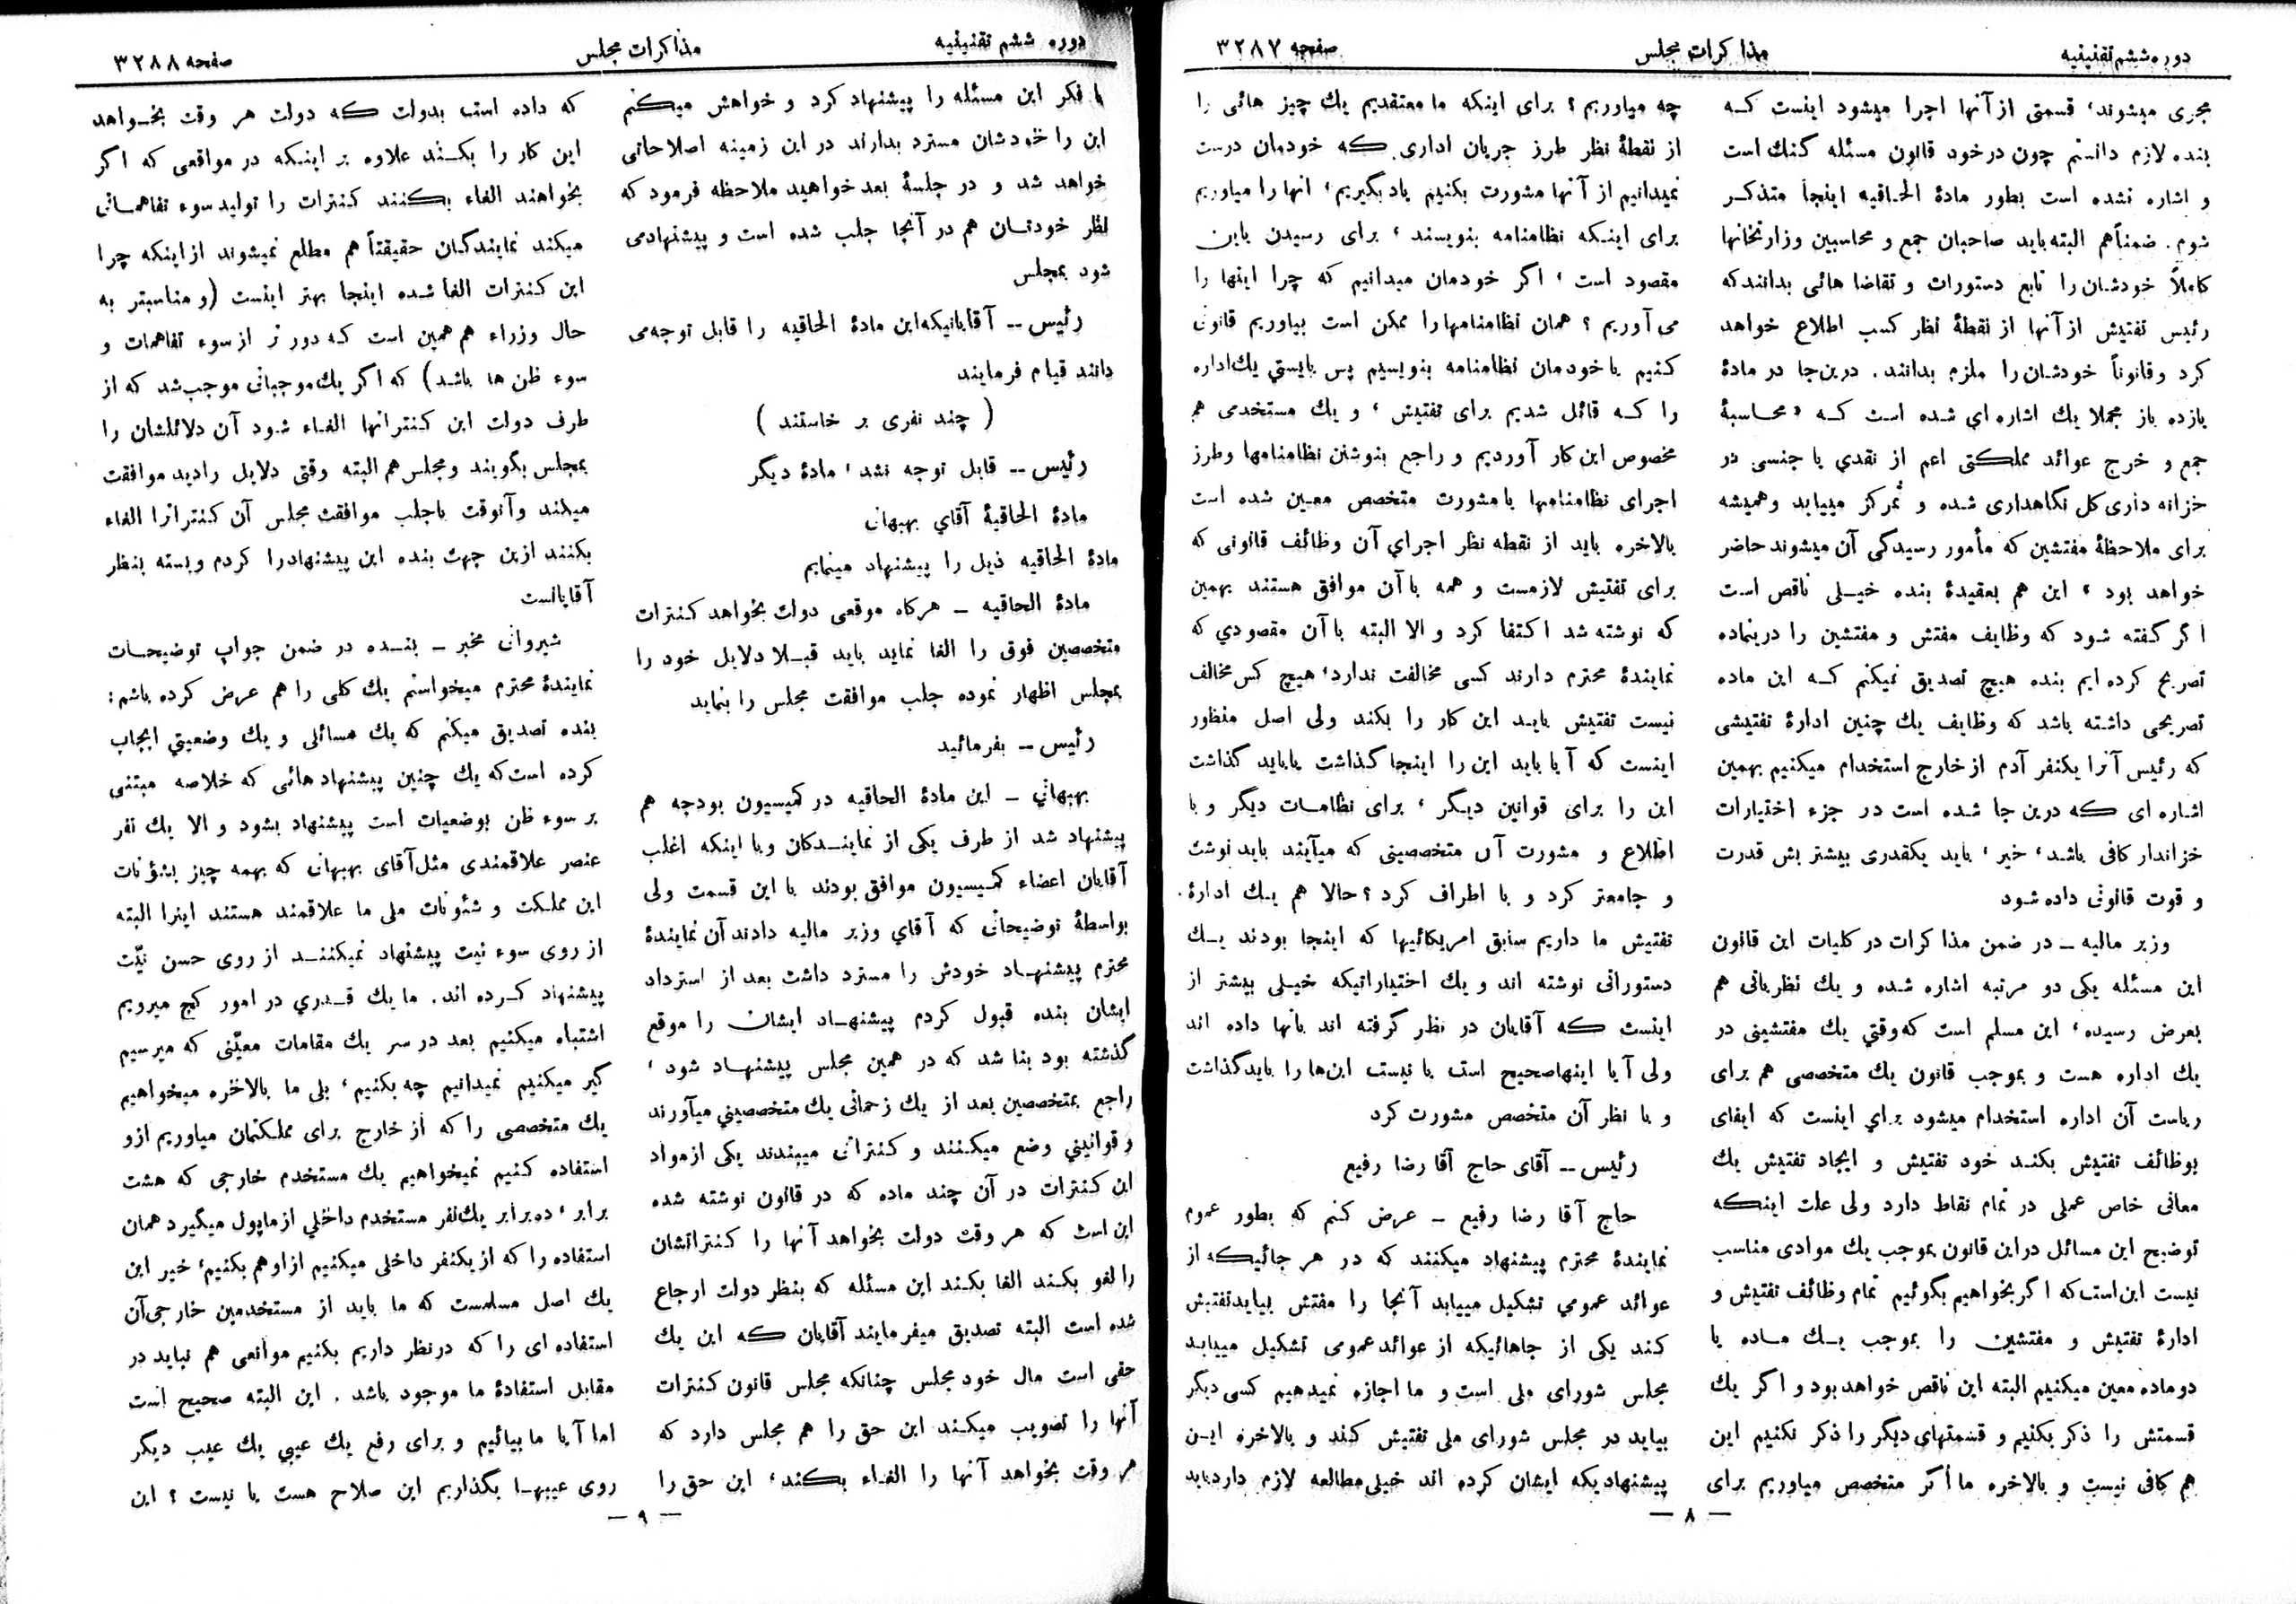 دوره ششم تقنینیه
مذاکرات مجلس
صفحه ۳۲۸۷
مجری میشوند، قسمتی از آنها اجرا میشود اینست کـه
بنده لازم دانستم چون در خود قانون مسئله گنك است
و اشاره نشده است بطور مادهٔ الحـاقیه اینجا متذکـر
شوم. ضمناًهم البته باید صاحبان جمع و محاسبین وزارتخانها
کاملاً خودشـان را تابع دستورات و تقاضا هائی بدانندکه
رئیس تفتیش از آنها از نقطهٔ نظر کسب اطلاع خواهد
کرد و قانوناً خودشـان را ملزم بدانند. درین‌جا در مادهٔ
یازده باز مجملا یك اشاره‌ اي شده است کـه « محـاسبهٔ
جمع و خرج عوائد مملکتی اعم از نقدي یا جنسی در
خزانه داری کل نگاهداری شده و تمرکز مییابد وهمیشه
برای ملاحظهٔ مفتشین که مأمور رسیدگی آن میشوند حاضر
خواهد بود » این هم بعقیدهٔ بنده خیـلی ناقص است
اگر گفته شود که وظایف مفتش و مفتشین را درینماده
تصریح کرده ایم بنده هیچ تصدیق نمیکنم کـه این ماده
تصریحی داشته باشد که وظایف یك چنین ادارهٔ تفتیشی
که رئیس آنرا یکنفر آدم از خارج استخدام میکنیم بهمین
اشاره ای کـه درین جا شده است در جزء اختیارات
خزاندار کافی باشـد، خیر، باید یکقدری بیشتر بش قدرت
و قوت قانونی داده شود
وزیر مالیه ـ در ضمن مذاکرات در کلیات این قانون
این مسئله یکی دو مرتبه اشاره شده و یك نظریاتی هم
بعرض رسیده، این مسلم است که وقتي یك مفتشینی در
یك اداره هست و بموجب قانون یك متخصصی هم برای
ریاست آن اداره استخدام میشود براي اینست که ایفای
بوظائف تفتیش بکنـد خود تفتیش و ایجاد تفتیش یك
معانی خاص عملی در تمام نقاط دارد ولی علت اینکه
توضیح این مسائل در این قانون بموجب یك موادی مناسب
نیست این است که اگر بخواهیم بگوئیم تمام وظائف تفتیش و
ادارهٔ تفتیش و مفتشین را بموجب یـك مـاده یا
دو ماده معین میکنیم البته این ناقص خواهد بود و اگر یك
قسمتش را ذکر بکنیم و قسمتهای دیگر را ذکر نکنیم این
هم کافی نیست و بالاخره ما اگر متخصص میاوریم برای
چه میاوریم؟ برای اینکه ما معتقدیم یك چیز هائی را
از نقطهٔ نظر طرز جریان اداری کـه خودمان درست
نمیدانیم از آنها مشورت بکنیم یاد بگیریم، انها را میاوریم
برای اینـکه نظامنامه بنویسند، برای رسیدن باین
مقصود است، اگر خودمان میدانیم که چرا اینها را
می آوریم؟ همان نظامنامها را ممکن است بیاوریم قانونی
کنیم یا خودمان نظامنامه بنویسیم پس بایستي یك اداره
را کـه قائل شدیم برای تفتیش، و یك مستخدمی هم
مخصوص این کار آوردیم و راجع بنوشتن نظامنامها وطرز
اجرای نظامنامها با مشورت متخصص معـین شده است
بالاخره باید از نقطه نظر اجراي آن وظائف قانونی که
برای تفتیش لازمست و همه با آن موافق هستند بهمین
که نوشته شد اکتفا کرد و الا البته با آن مقصودي که
نمایندهٔ محترم دارند کسی مخالفت ندارد، هیچ کس مخالف
نیست تفتیش بایـد این کار را بکند ولی اصل منظور
اینست که آیا باید این را اینجا گذاشت یا باید گذاشت
این را برای قوانین دیـگر، برای نظامـات دیگر و با
اطلاع و مشورت آن متخصصینی که میآیند باید نوشت
و جامعتر کرد و با اطراف کرد؟ حالا هم یـك ادارهٔ
تفتیش ما داریم سابق امریکائیها که اینجا بودند یـك
دستوراتی نوشته اند و یك اختیاراتیکه خیـلی بیشتر از
اینست کـه آقایان در نظر گرفته اند بآنها داده اند
ولی آیا اینهاصحیح است یا نیست این‌ها را باید گذاشت
و با نظر آن متخصص مشورت کرد
رئیس ــ آقای حاج آقا رضا رفیع
حاج آقا رضا رفیع ـ عرض کنم که بطور عموم
نمایندهٔ محترم پیشنهاد میکنند که در هر جائیـکه از
عوائد عمومي تشکیل مییابد آنجا را مفتش بیایدتفتیش
کند یکی از جاهائیکه از عوائد عمومی تشکیل مییابـد
مجلس شورای ملی است و ما اجازه نمیدهیم کسی دیگر
بیاید در مجلس شورای ملی تفتیش کند و بالاخره ایـن
پیشنهادیکه ایشان کرده اند خیلی مطالعه لازم دارد باید
ـ ۸ ـ
دوره ششم تقنینیه
مذاکرات مجلس
صفحه ۳۲۸۸
با فکر این مسئله را پیشنهاد کرد و خواهش میکنم
این را خودشان مسترد بدارند در این زمینه اصلاحاتی
خواهد شد و در جلسهٔ بعد خواهید ملاحظه فرمود که
نظر خودتـان هم در آنجا جلب شده است و پیشنهادمی
شود بمجلس
رئیس ــ آقایانیکه این مادهٔ الحاقیه را قابل توجه می
دانند قیام فرمایند
( چند نفری بر خاستند )
رئیس ــ قابل توجه نشد، مادهٔ دیگر
مادهٔ الحاقیهٔ آقاي بهبهانی
مادهٔ الحاقیه ذیل را پیشنهاد مینمایم
مادهٔ الحاقیه ـ هرگاه موقعی دولت بخواهد کنترات
متخصصین فوق را الغا نماید باید قبـلا دلایل خود را
بمجلس اظهار نموده جلب موافقت مجلس را بنماید
رئیس ــ بفرمائید
بهبهانی ـ این مادهٔ الحاقیه در کمیسیون بودجه هم
پیشنهاد شد از طرف یکی از نماینـدکان وبا اینکه اغلب
آقایان اعضاء کمیسیون موافق بودند با این قسمت ولی
بواسطهٔ توضیحاتی که آقاي وزیر مالیه دادند آن نمایندهٔ
محترم پیشنهـاد خودش را مسترد داشت بعد از استرداد
ایشان بنده قبول کردم پیشنهـاد ایشان را موقع
گذشته بود بنا شد که در همین مجلس پیشنهـاد شود،
راجع بمتخصصین بعد از یك زحماتی یك متخصصیني میآورند
و قوانیني وضع میکـنند و کنتراتی میبندند یکی از مواد
این کنترات در آن چند ماده که در قانون نوشته شده
این است که هر وقت دولت بخواهد آنها را کنتراتشان
را لغو بکـند الغا بکـند این مسئله که بنظر دولت ارجاع
شده است البته تصدیق میفرمایند آقایان کـه این یك
حقی است مال خود مجلس چنانکه مجلس قانون کنترات
آنها را تصویب میکـند این حق را هم مجلس دارد که
هر وقت بخواهد آنها را الغـاء بـکند، این حق را
که داده است بدولت کـه دولت هر وقت بخـواهد
این کار را بکـند علاوه بر اینـکه در مواقعی که اگر
بخواهند الغاء بـکنند کنترات را تولید سوء تفاهمـاتی
میکند نمایندگـان حقیقتاً هم مطلع نمیشوند از اینکه چرا
این کنترات الغا شده اینجا بهتر اینست (و مناسبتر به
حال وزراء هم همین است کـه دور تر از سوء تفاهمات و
سوء ظن ها باشد) که اگر یك موجباتی موجب شد که از
طرف دولت این کـنتراتها الغـاء شود آن دلائلشان را
بمجلس بگویند و مجلس هم البته وقتی دلایل را دید موافقت
میکند و آنوقت با جلب موافقت مجلس آن کنتراترا الغاء
بکنند ازین جهت بنده این پیشنهاد را کردم و بسته بنظر
آقایانست
شیروانی مخبر ـ بنـده در ضمن جواب توضیحـات
نمایندهٔ محترم میخواستم یك کلی را هم عرض کرده باشم:
بنده تصدیق میکنم که یك مسائلی و یك وضعیتي ایجاب
کرده است که یك چنین پیشنهاد هائی که خلاصه مبتنی
بر سوء ظن بوضعیات است پیشنهاد بشود و الا یك نفر
عنصر علاقمندی مثل آقای بهبهانی که بهمه چیز بشؤنات
این مملـکت و شئونات ملی ما علاقمند هستند اینرا البته
از روی سوء نیت پیشنهاد نمیکننـد از روی حسن نیّت
پیشنهاد کـرده اند. ما یك قـدري در امور کج میرویم
اشتباه میکنیم بعد در سر یك مقامات معیّنی که میرسیم
گیر میکنیم نمیدانیم چه بکنیم، بلی ما بالاخره میخواهیم
یك متخصصی را که از خارج برای مملـکتمان میاوریم ازو
استفاده کنیم نمیخواهیم یك مستخدم خارجی که هشت
برابر، ده برابر یك نفر مستخدم داخلي از ما پول میگیرد همان
استفاده را که از یکنفر داخلی میکنیم از او هم بکنیم، خیر این
یك اصل مسلمست که ما باید از مستخدمین خارجی آن
استفاده ای را که در نظر داریم بکنیم موانعی هم نباید در
مقابل استفادهٔ ما موجود باشد. این البته صحیح است
اما آیا ما بیائیم و برای رفع یك عیبي یك عیب دیگر
روی عیبهـا بگذاریم این صلاح هست یا نیست؟ این
ـ ۹ ـ